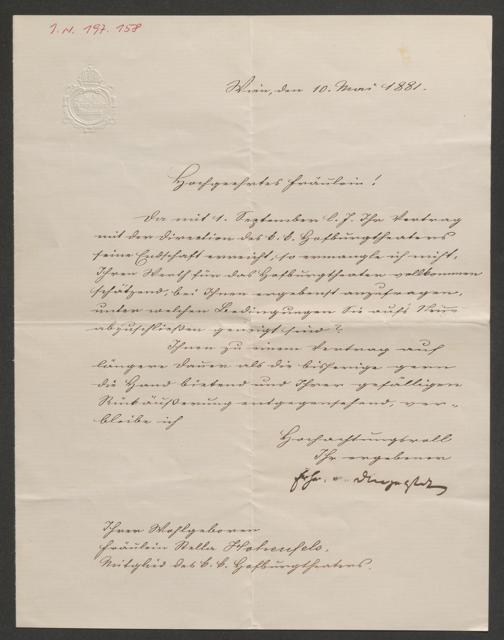 I. N. 197.158
Wien, den 10. Mai 1881.
Hochgeehrtes Fräulein!
Da mit 1. September l. J. Ihr Vertrag
mit der Direction des k. k. Hofburgtheaters
seine Endschaft erreicht, so ermangle ich nicht,
Ihren Werth für das Hofburgtheater vollkommen
schätzend, bei Ihnen ergebenst anzufragen,
unter welchen Bedingungen Sie aufs Neue
abzuschließen geneigt sind?
Ihnen zu einem Vertrag auf
längere Dauer als die bisherige gern
die Hand bietend und Ihrer gefälligen
Rückäußerung entgegensehend, ver-
bleibe ich
Hochachtungsvoll
Ihr ergebener
Frhr. v. Dingelstedt
Ihrer Wohlgeboren
Fräulein Stella Hohenfels,
Mitglied des k. k. Hofburgtheaters.